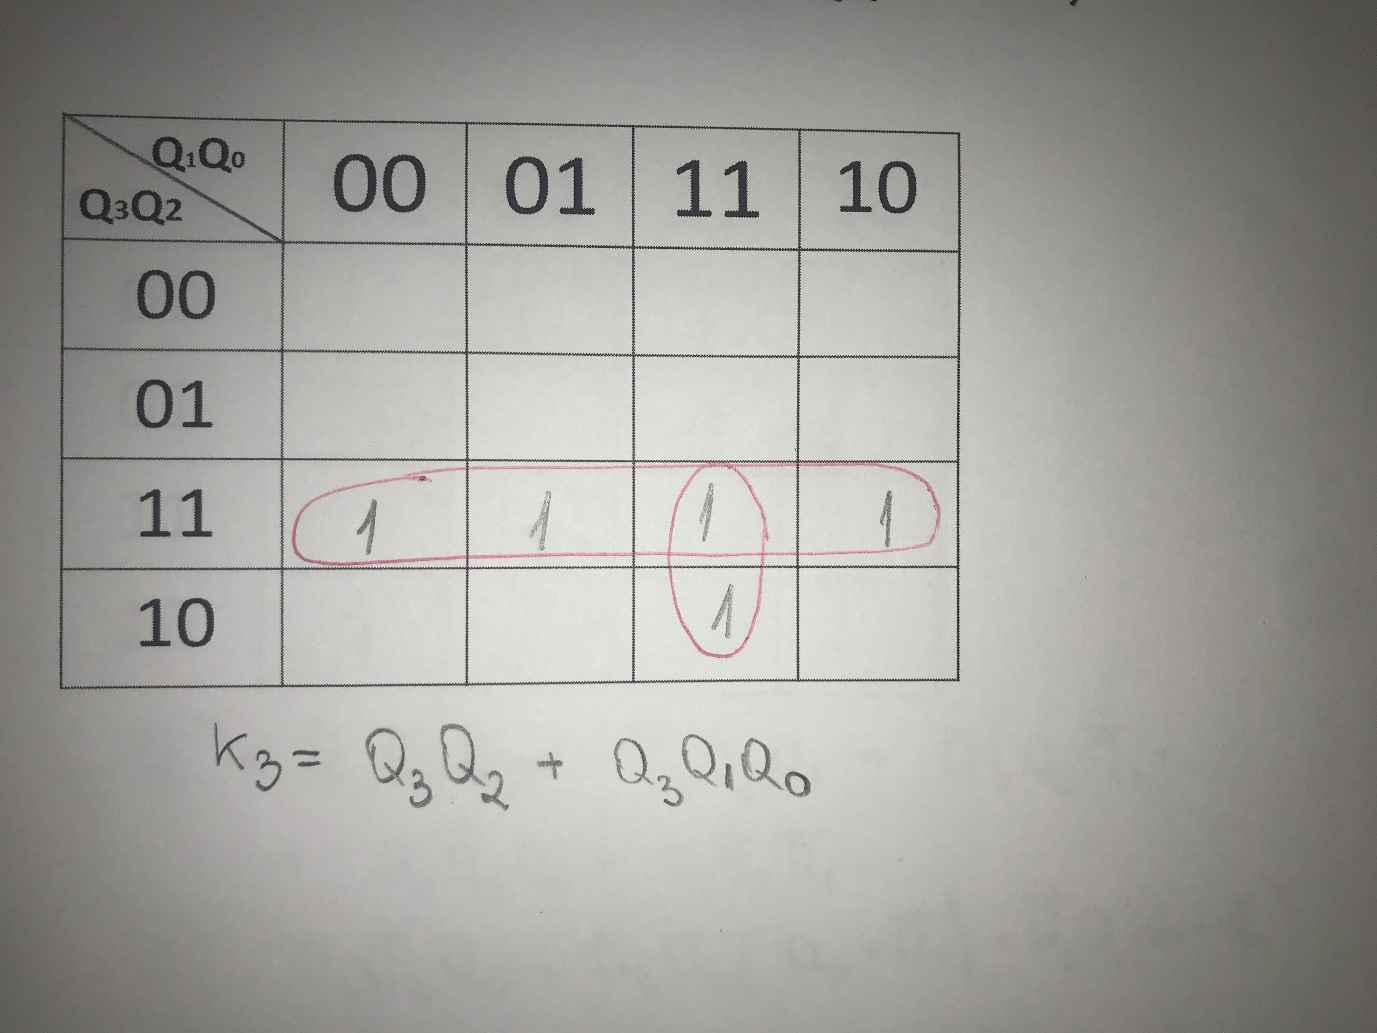 Q₁Q₀ 00 01 11 10
Q₃Q₂
00
01
11 1 1 1 1
10 1
K₃ = Q₃Q₂ + Q₃Q₁Q₀